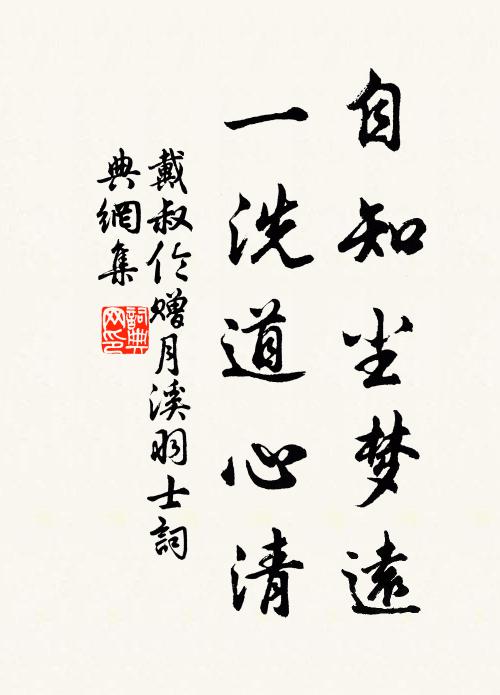 自知尘梦遠
一洗道心清
戴叔伦赠月溪羽士詞
典網集
詞典网印